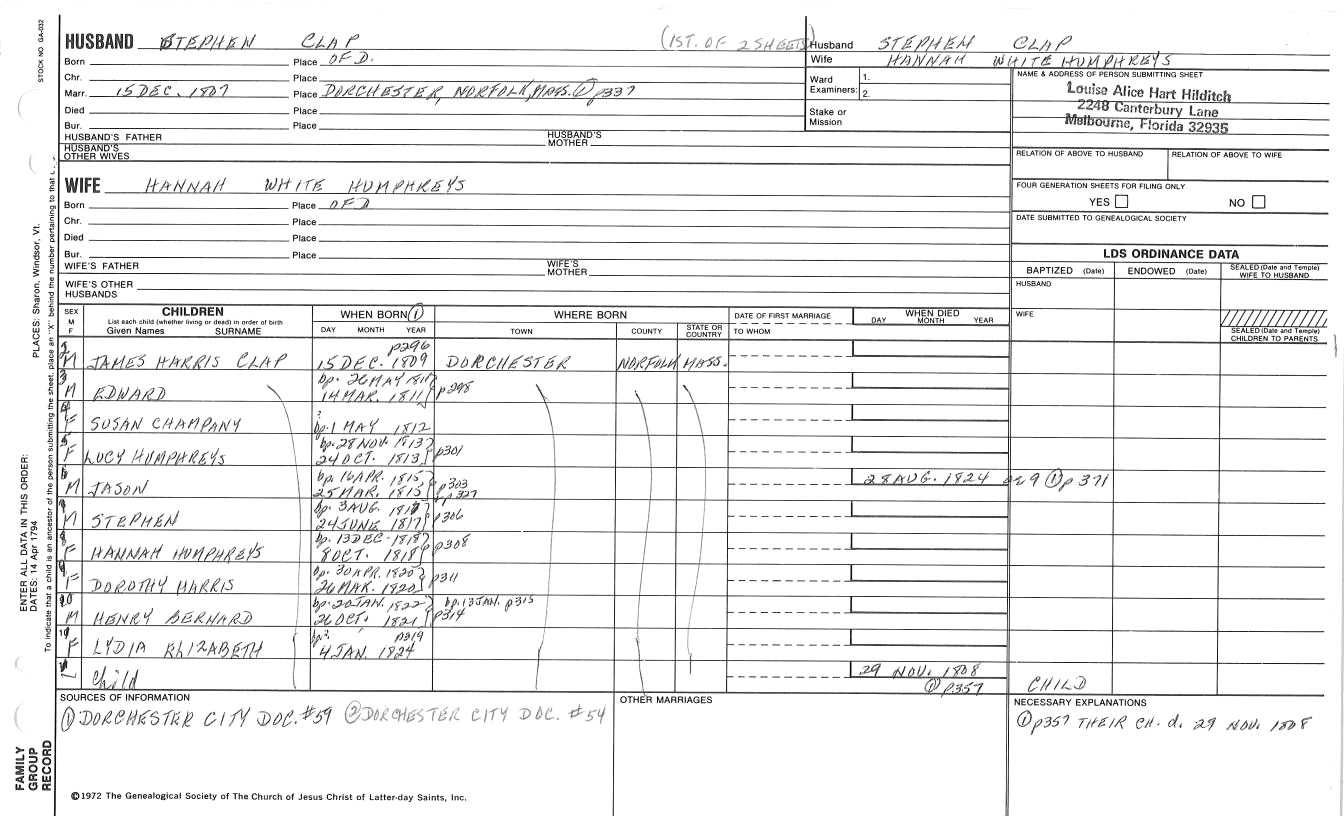 STOCK NO. GA-032
PLACES: Sharon, Windsor, Vt.
ENTER ALL DATA IN THIS ORDER:
DATES: 14 Apr 1794
To indicate that a child is an ancestor of the person submitting the sheet, place an "X" behind the number pertaining to that
FAMILY
GROUP
RECORD
HUSBAND STEPHEN CLAP (1ST. OF 2 SHEETS)
Born Place OF D.
Chr. Place
Marr. 15 DEC. 1807 Place DORCHESTER, NORFOLK, MASS. ① p337
Died Place
Bur. Place
HUSBAND'S FATHER HUSBAND'S MOTHER
HUSBAND'S OTHER WIVES
WIFE HANNAH WHITE HUMPHREYS
Born Place OF D
Chr. Place
Died Place
Bur. Place
WIFE'S FATHER WIFE'S MOTHER
WIFE'S OTHER HUSBANDS
Husband STEPHEN CLAP
Wife HANNAH WHITE HUMPHREYS
Ward Examiners: 1.
2.
Stake or Mission
NAME & ADDRESS OF PERSON SUBMITTING SHEET
Louise Alice Hart Hilditch
2248 Canterbury Lane
Melbourne, Florida 32935
RELATION OF ABOVE TO HUSBAND RELATION OF ABOVE TO WIFE
FOUR GENERATION SHEETS FOR FILING ONLY
YES NO
DATE SUBMITTED TO GENEALOGICAL SOCIETY
LDS ORDINANCE DATA
BAPTIZED (Date) ENDOWED (Date) SEALED (Date and Temple) WIFE TO HUSBAND
HUSBAND
WIFE
SEALED (Date and Temple) CHILDREN TO PARENTS
SEX M F
CHILDREN
List each child (whether living or dead) in order of birth
Given Names SURNAME
WHEN BORN ①
DAY MONTH YEAR
WHERE BORN
TOWN COUNTY STATE OR COUNTRY
DATE OF FIRST MARRIAGE
TO WHOM
WHEN DIED
DAY MONTH YEAR
p296
M JAMES HARRIS CLAP 15 DEC. 1809 DORCHESTER NORFOLK MASS.
3 bp. 26 MAY 1811
M EDWARD 14 MAR. 1811 p298
?
F SUSAN CHAMPANY bp. 1 MAY 1812
5 bp. 28 NOV. 1813
F LUCY HUMPHREYS 24 OCT. 1813 p301
6 bp. 16 APR. 1815 p303
M JASON 25 MAR. 1815 p327 28 AUG. 1824 ae 9 ① p371
bp. 3 AUG. 1817
M STEPHEN 24 JUNE 1817 p306
bp. 13 DEC. 1818
F HANNAH HUMPHREYS 8 OCT. 1818 p308
bp. 30 APR. 1820
F DOROTHY HARRIS 26 MAR. 1820 p311
10 bp. 20 JAN. 1822 bp. 13 JAN. p315
M HENRY BERNARD 26 OCT. 1821 p314
bp? p319
F LYDIA ELIZABETH 4 JAN. 1824
Child 29 NOV. 1808
① p357 CHILD
SOURCES OF INFORMATION
① DORCHESTER CITY DOC. #59 ② DORCHESTER CITY DOC. #54
OTHER MARRIAGES
NECESSARY EXPLANATIONS
① p357 THEIR CH. d. 29 NOV. 1808
©1972 The Genealogical Society of The Church of Jesus Christ of Latter-day Saints, Inc.